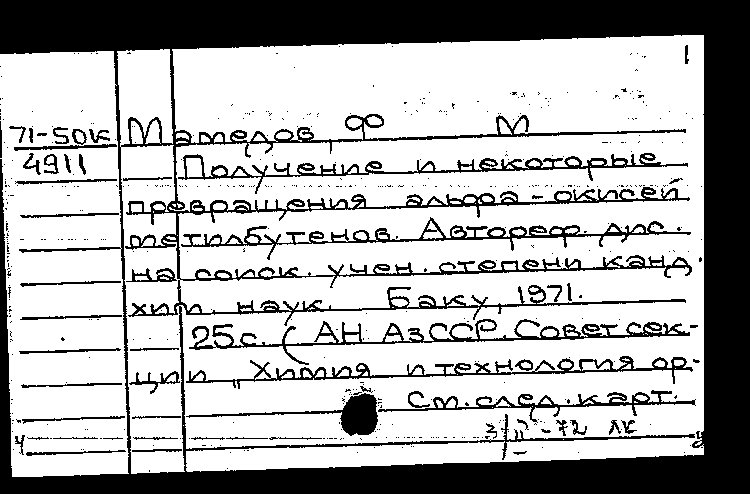 1
71-50к Мамедов, Ф М
4911 Получение и некоторые
превращения альфа-окисей
метилбутенов. Автореф. дис.
на соиск. учен. степени канд.
хим. наук. Баку, 1971.
25с. (АН АзССР. Совет сек-
ции „Химия и технология ор-
См. след. карт.
3/II-72 ЛК